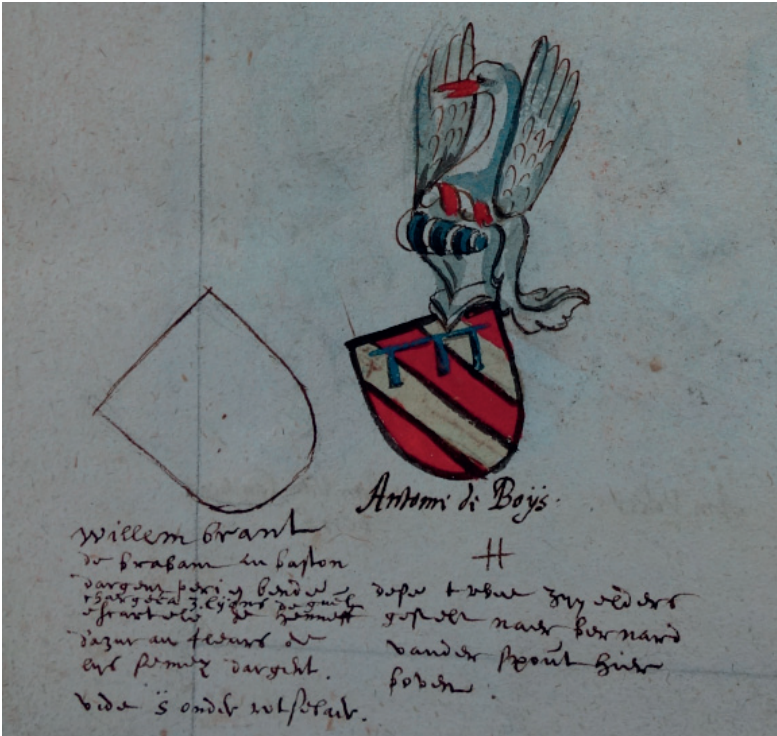 Antoni de Boÿs.
willem brant
de brabant au baston
dargent peri en bende
chargée 3. lyons de guel
escartele de henneff
dazur au fleurs de
lys semez dargent.
vide is onder rotselair.
dese twee zyn elders
gestelt naer bernard
vander spout hier
boven.